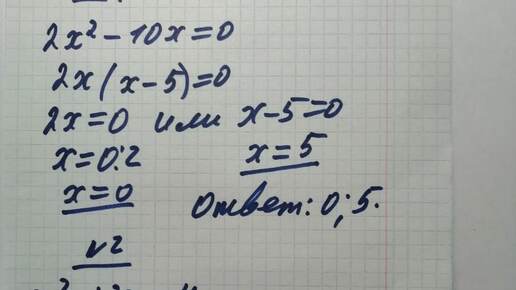 2x² - 10x = 0
2x(x - 5) = 0
2x = 0 или x - 5 = 0
x = 0:2 x = 5
x = 0 Ответ: 0; 5.
√2